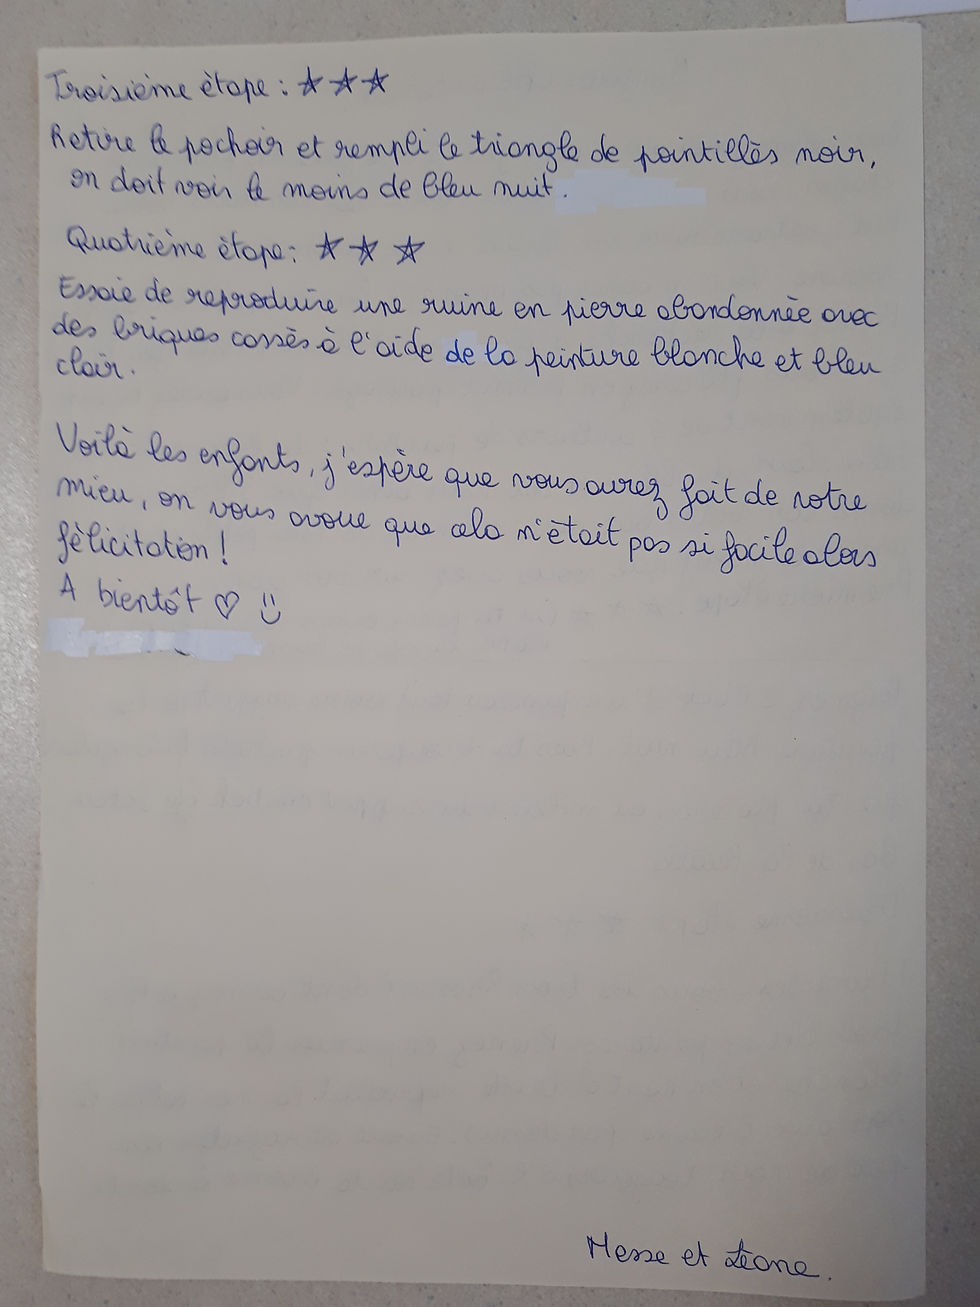 Troisième étape : ☆ ☆ ☆
Retire le pochoir et rempli le triangle de pointillés noir,
on doit voir le moins de bleu nuit.
Quatrième étape : ☆ ☆ ☆
Essaie de reproduire une ruine en pierre abandonnée avec
des briques cassés à l'aide de la peinture blanche et bleu
clair.
Voilà les enfants, j'espère que vous aurez fait de votre
mieu, on vous avoue que cela n'était pas si facile alors
félicitation !
A bientôt ♡ ☺
et Léane.